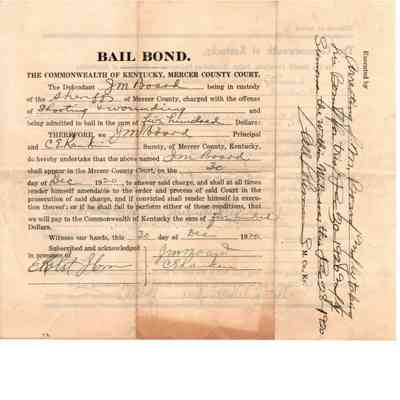 BAIL BOND.
THE COMMONWEALTH OF KENTUCKY, MERCER COUNTY COURT.
The Defendant J M Board being in custody
of the Sheriff of Mercer County, charged with the offense
of Shooting & wounding and
being admitted to bail in the sum of five hundred Dollars:
THEREFORE, we J M Board Principal
and C E Rankin Surety, of Mercer County, Kentucky,
do hereby undertake that the above named J M Board
shall appear in the Mercer County Court, on the 30
day of Dec 1920, to answer said charge, and shall at all times
render himself amendable to the order and process of said Court in the
prosecution of said charge, and if convicted shall render himself in execu-
tion thereof; or if he shall fail to perform either of these conditions, that
we will pay to the Commonwealth of Kentucky the sum of five hundred
Dollars.
Witness our hands, this 30 day of Dec 1920
Subscribed and acknowledged
in presence of
J M Board
C E Rankin
Executed by
Arresting J M Board and taking
his Bond for trial Dec 30 1920
Summons the within Witnesses this Dec 1920
S. M. Co. Ky.